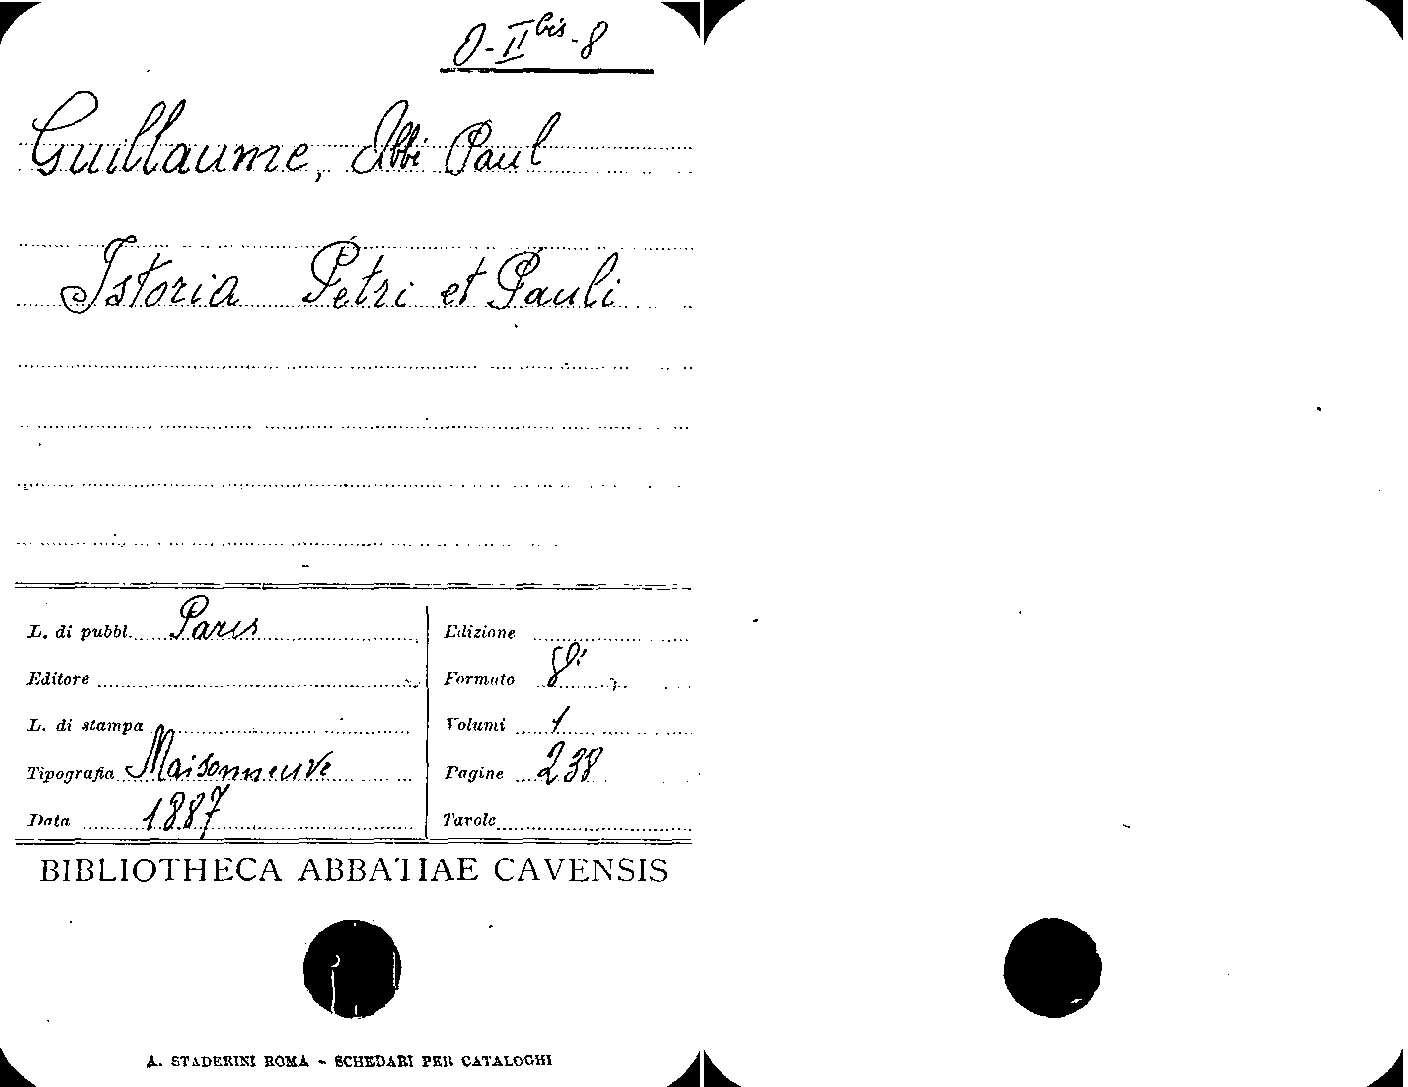 O-II bis-8
Guillaume, Abbi Paul
Istoria Petri et Pauli
L. di pubbl. Paris
Editore
L. di stampa
Tipografia Maisonneuve
Data 1887
Edizione
Formato 8º
Volumi 1
Pagine 238
Tavole
BIBLIOTHECA ABBATIAE CAVENSIS
A. STADERINI ROMA - SCHEDARI PER CATALOGHI